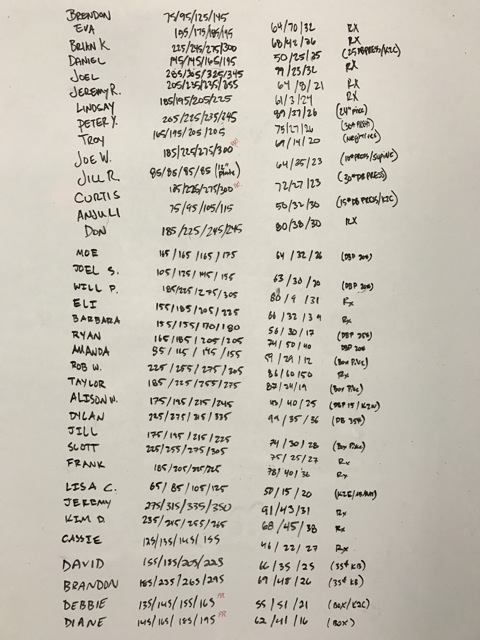 BRENDON 75/95/125/145
EVA 155/175/185/195 64/70/32 RX
BRIAN K. 225/245/275/300 68/42/26 RX
DANIEL 145/145/165/195 50/25/25 (25 DB PRESS/K2C)
JOEL 285/305/325/345 79/23/32 RX
JEREMY R. 205/225/235/255 64/8/21 RX
LINDSAY 185/195/205/225 61/3/24 RX
PETER Y. 205/225/235/245 89/37/26
TROY 165/195/205/205 75/27/26
JOE W. 185/225/275/300 PR 69/14/20
JILL R. 85/85/85/85 (12" 64/25/23
CURTIS 185/225/275/300 PR 72/27/23 (30# DB PRESS)
ANJULI 75/95/105/115 50/32/30 (15# DB PRESS/K2C)
DON 185/225/245/245 80/38/30 RX
MOE 165/165/165/175 64/32/26 (DBP 20#)
JOEL S. 105/125/145/155 63/30/20
WILL P. 185/225/275/305 80/9/31 (DBP 20#)
ELI 155/185/205/225 66/32/39 Rx
BARBARA 135/155/170/180 56/30/17 Rx
RYAN 165/185/205/205 74/50/40 (DBP 35#)
AMANDA 95/115/145/155 59/29/12 DBP 20#
ROB W. 225/255/275/305 86/60/50 (Box Pike)
TAYLOR 185/225/255/275 87/24/19 Rx
ALISON W. 175/195/215/245 40/25 (Box Pike)
DYLAN 225/275/315/335 99/35/36 (DB 35#)
JILL 175/195/215/225
SCOTT 225/255/275/305 74/30/28 (Box Pike)
FRANK 185/205/225/225 75/25/27 Rx
78/40/36 Rx
LISA C. 65/85/105/125 50/15/20
JEREMY 275/315/335/350 91/43/31 Rx
KIM D. 235/245/255/265 68/45/38 Rx
CASSIE 125/135/145/155 46/22/27 Rx
DAVID 155/185/205/225 66/35/25 (35# KB)
BRANDON 185/235/265/295 69/48/26 (35# KB)
DEBBIE 135/145/155/165 PR 55/51/21 (BOX/K2C)
DIANE 145/165/185/195 PR 62/41/16 (BOX)